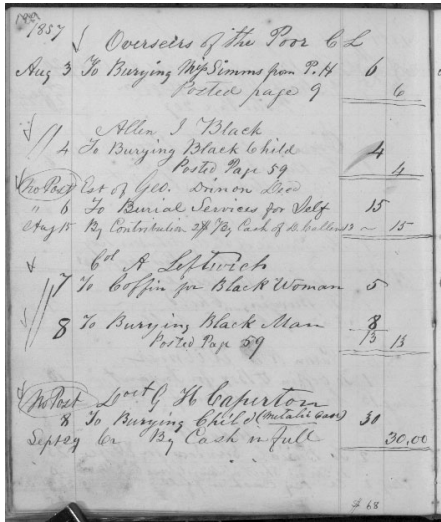 1857
Overseirs of the Poor C L
Aug 3 To Burying Miss Simms from P. H 6
Posted page 9 6
Allen J Black
" 4 To Burying Black Child 4
Posted Page 59 4
No Post Est of Geo. Drinon Decd
" 6 To Burial Services for Self 15
Aug 15 By Contribution By Cash of 15
Col A Leftwich
7 To Coffin for Black Woman 5
8 To Burying Black Man 8
Posted Page 59 13 13
No Post Doct G H Caperton
8 To Burying Child (Metalic Case) 30
Sept 29 Cr By Cash in full 30.00
# 68